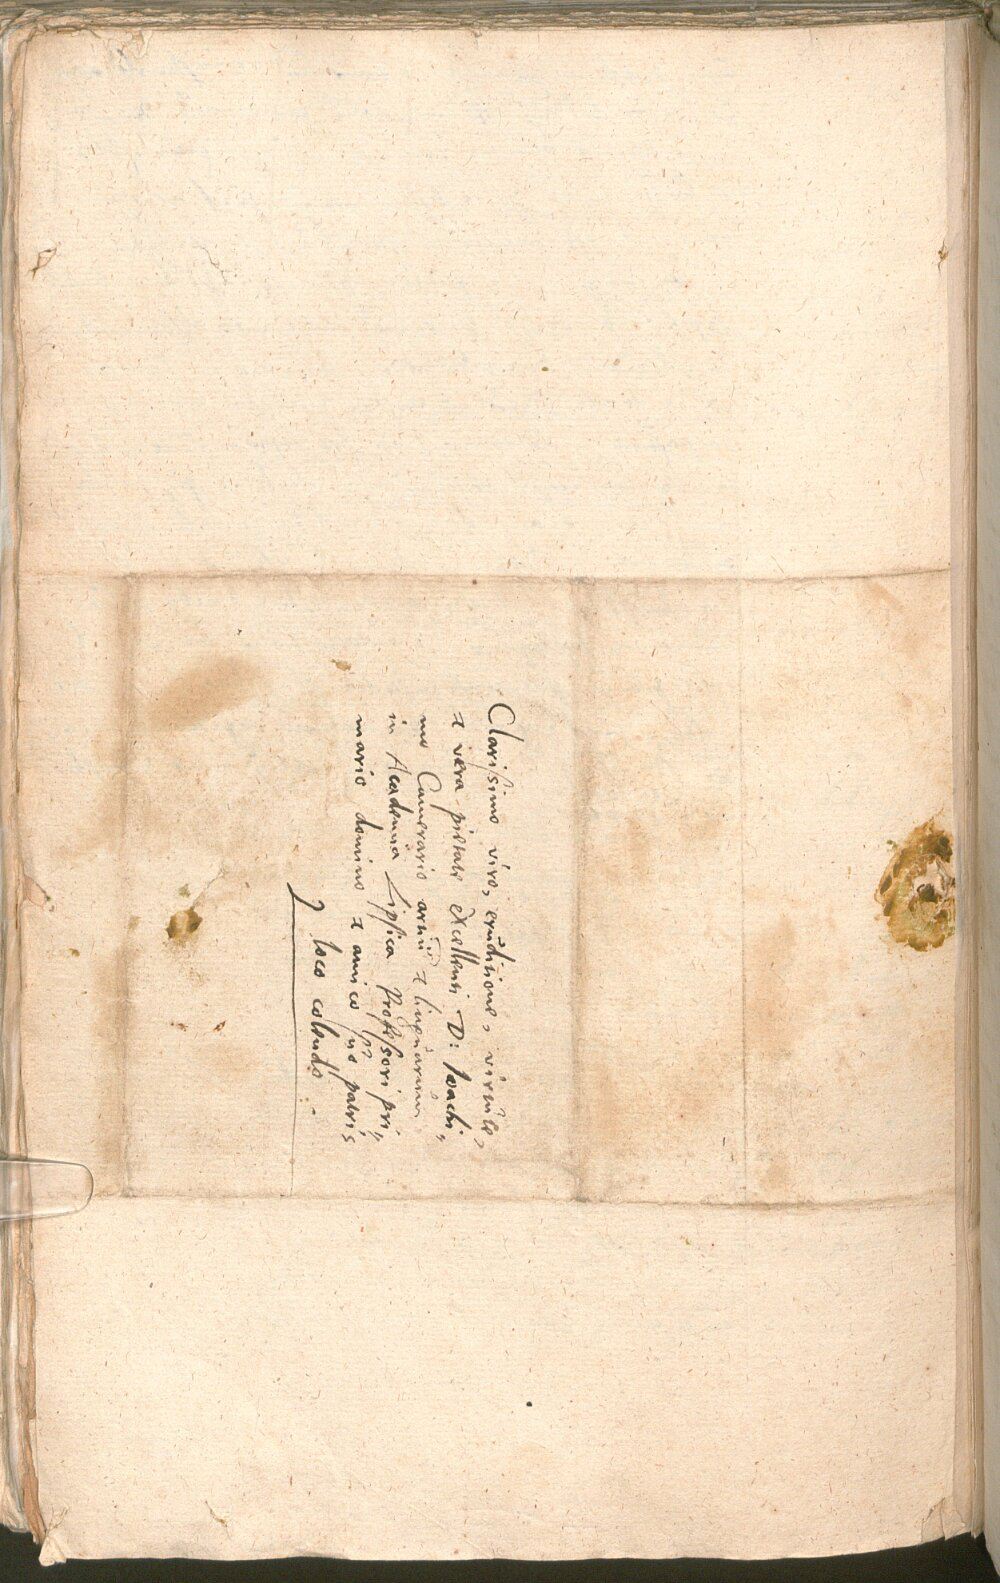 Clarissimo viro, eruditione, virtute,
& vera pietate excellenti D: Ioachi,,
mo Camerario artiũ & linguarum
in Academia Lipsica professori pri,,
mario domino & amico suo patris
loco colendo.